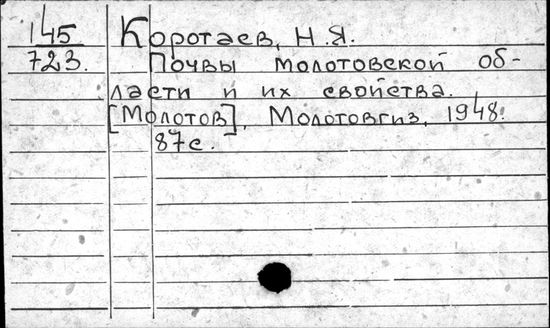 145
723.
Коротаев, Н.Я.
Почвы молотовской об-
ласти и их свойства.
[Молотов], Молотовгиз, 1948.
87с.